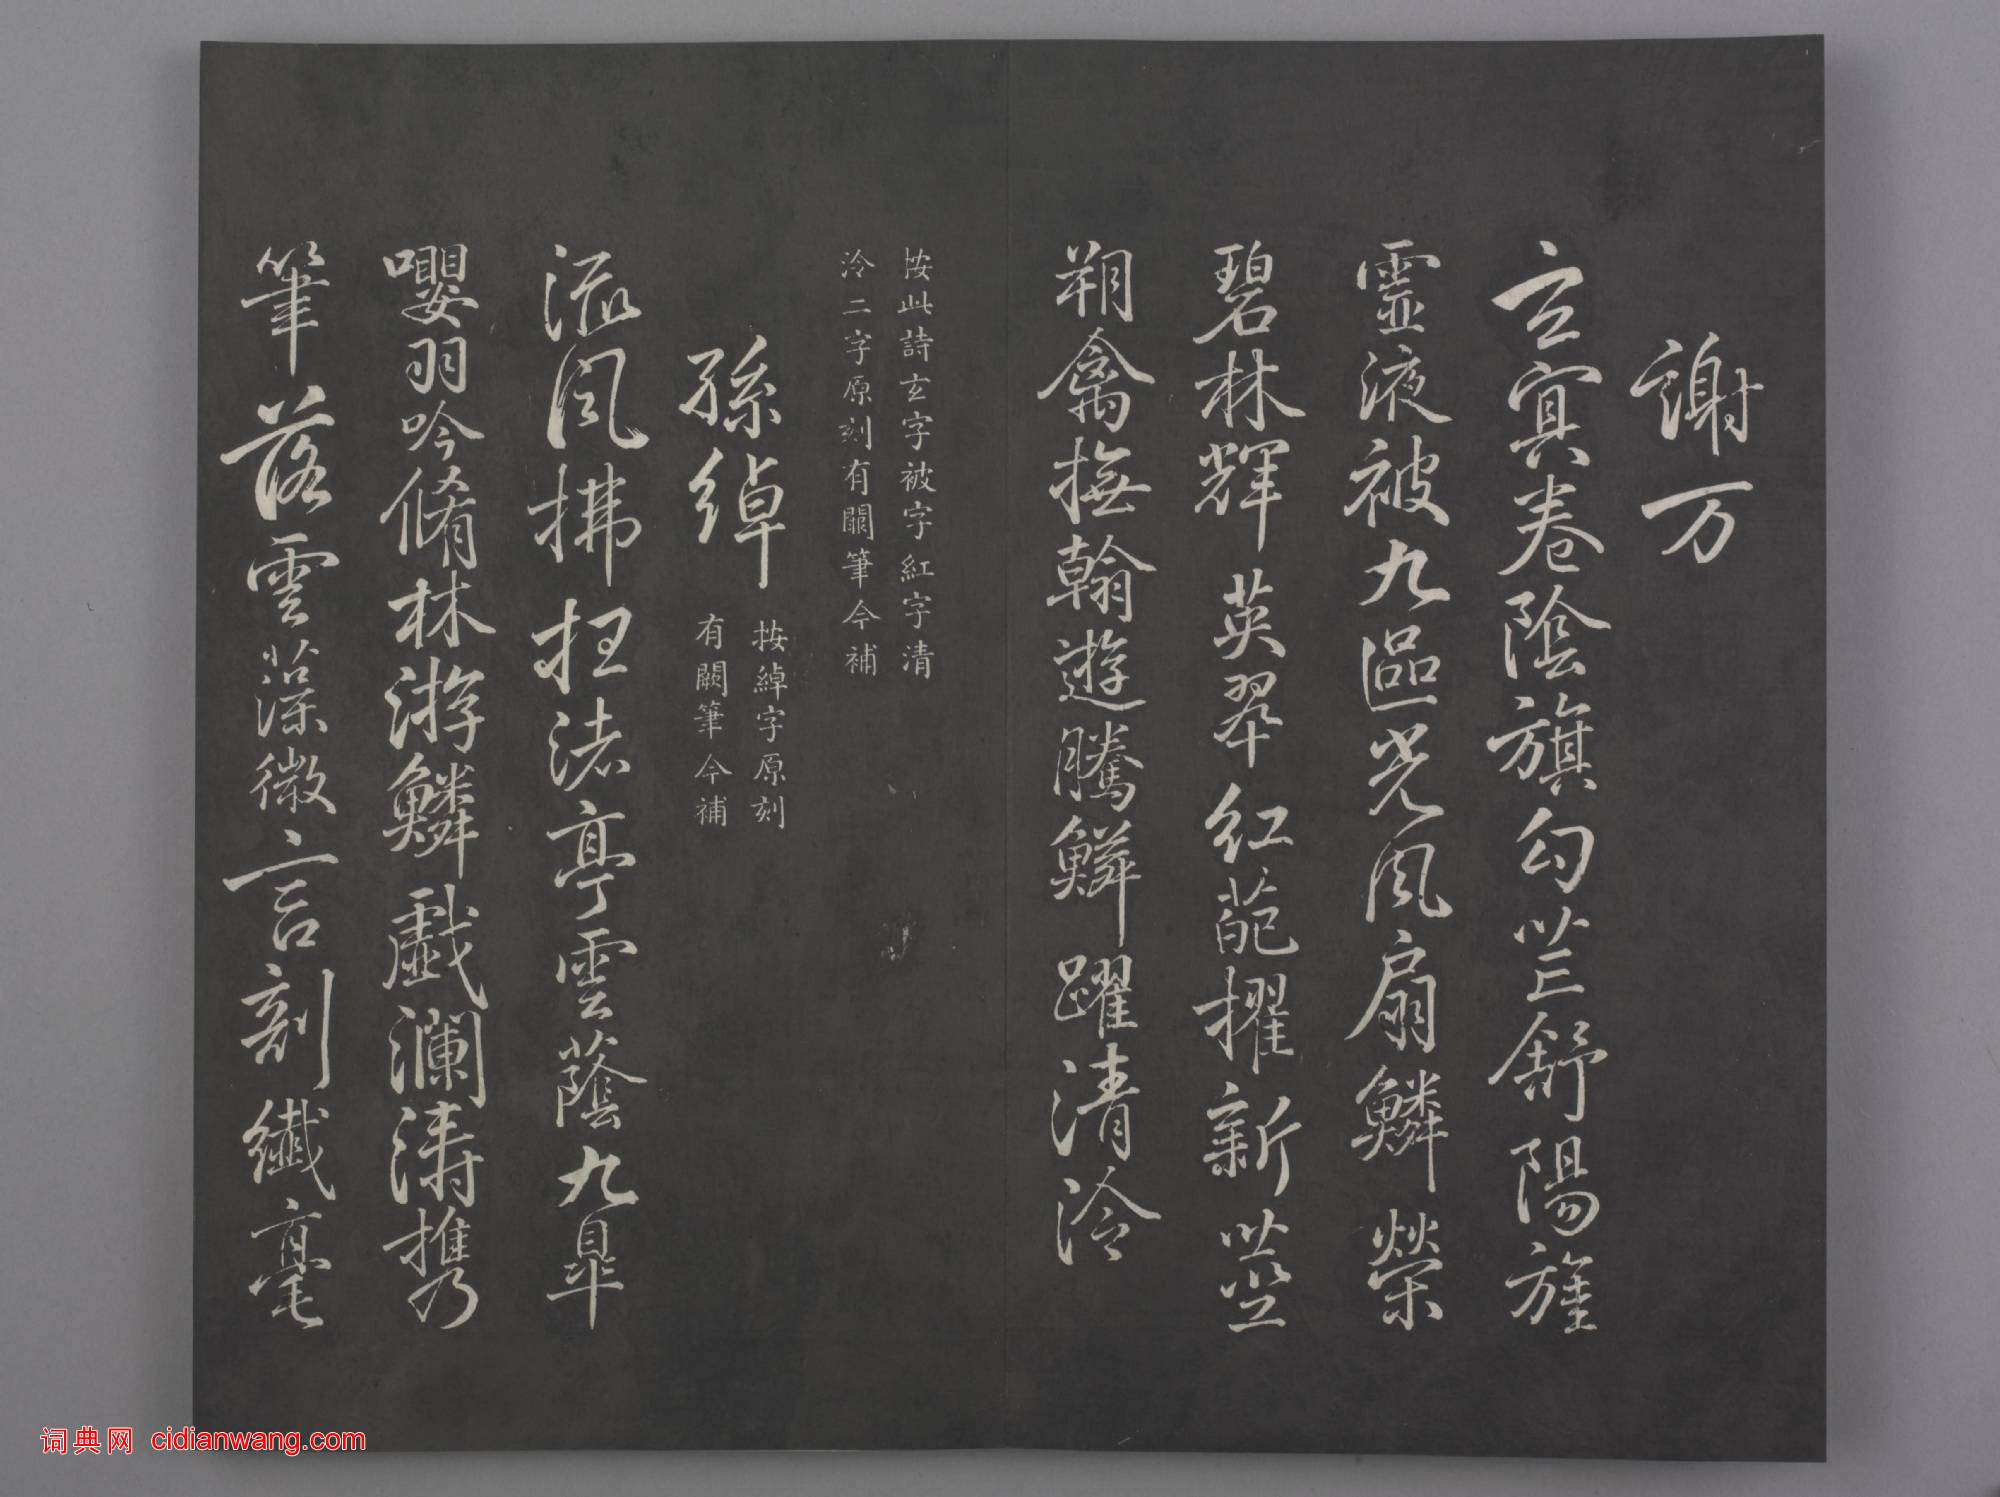 謝万
玄冥卷陰旗勾芒舒陽旌
靈液被九區光風扇鱗榮
碧林輝英翠紅葩擢新莖
翔禽撫翰遊騰鱗躍清泠
按此詩玄字被字紅字清
泠二字原刻有闕筆今補
孫綽
按綽字原刻
有闕筆今補
流風拂枉渚亭雲蔭九皐
嚶羽吟脩林游鱗戲瀾濤携
筆落雲藻微言剖纖毫
词典网 cidianwang.com